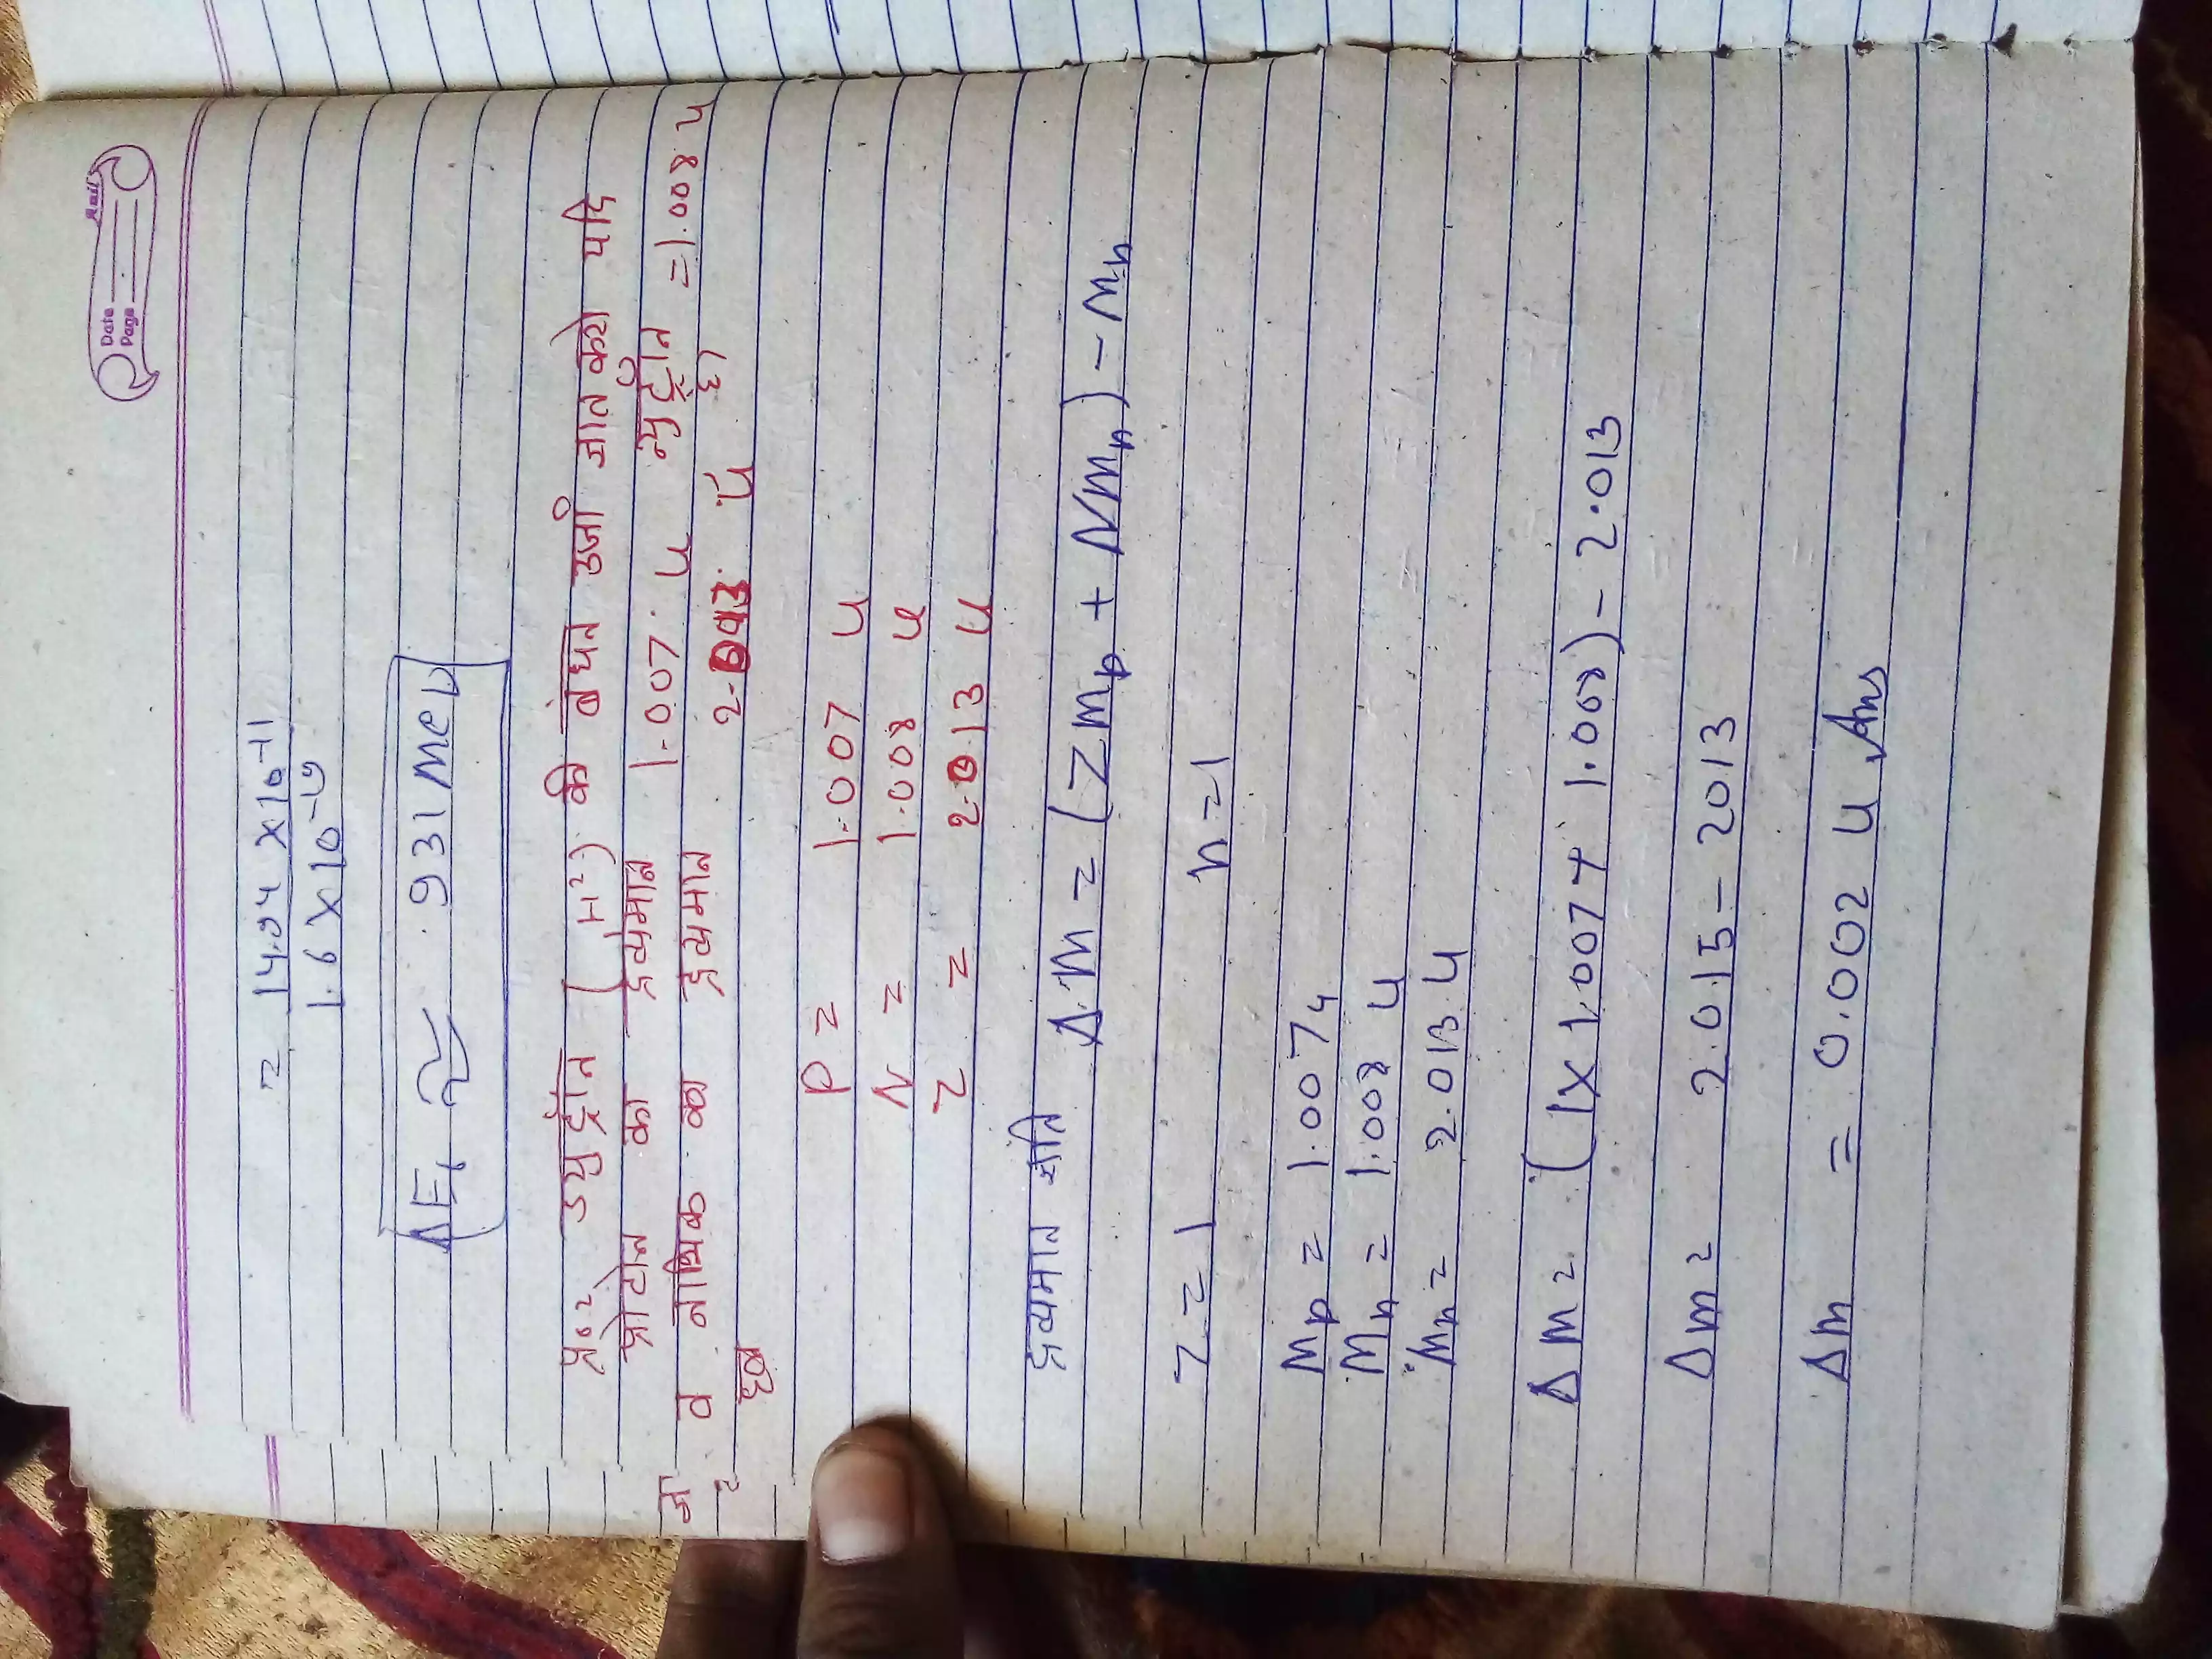 Date
Page
= 14.94 × 10⁻¹¹
1.6 × 10⁻¹⁹
ΔE ≈ 931 Mev
प्र०२ ड्यूट्रॉन (₁H²) की बंधन उर्जा ज्ञात करो यदि
प्रोटोन का द्रव्यमान 1.007 u न्यूट्रॉन = 1.008 u
व नाभिक का द्रव्यमान 2.013 u है।
हल
P = 1.007 u
N = 1.008 u
Z = 2.013 u
द्रव्यमान क्षति Δm = (Zmp + Nmn) - Mn
Z = 1 n = 1
Mp = 1.007u
Mn = 1.008 u
Mn = 2.013 u
Δm = (1×1.007+ 1.008) - 2.013
Δm = 2.015 - 2013
Δm = 0.002 u Ans